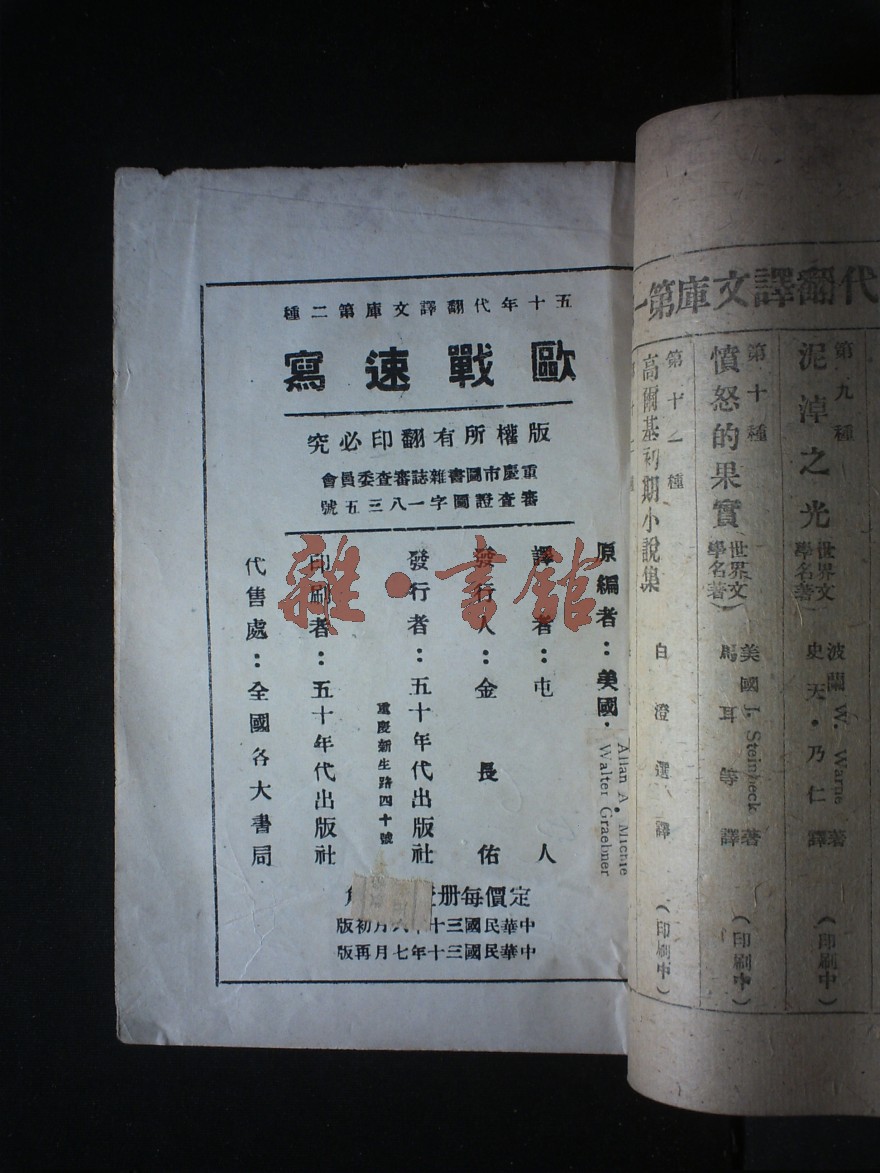 五十年代翻譯文庫第二種
歐戰速寫
版權所有翻印必究
重慶市圖書雜誌審查委員會
審查證圖字一八三五號
原編者：美國·
Allan A. Michie
Walter Graebner
譯者：屯人
發行人：金長佑
發行者：五十年代出版社
重慶新生路四十號
印刷者：五十年代出版社
代售處：全國各大書局
定價每册角
中華民國三十年六月初版
中華民國三十年七月再版
雜·書館
代翻譯文庫第
第九種
泥淖之光
世界文學名著
波蘭 W. Warne 著
史天·乃仁譯
（印刷中）
第十種
憤怒的果實
世界文學名著）
美國 J. Steinbeck 著
馬耳等譯
（印刷中）
第十一種
高爾基初期小說集
白澄選譯
（印刷中）